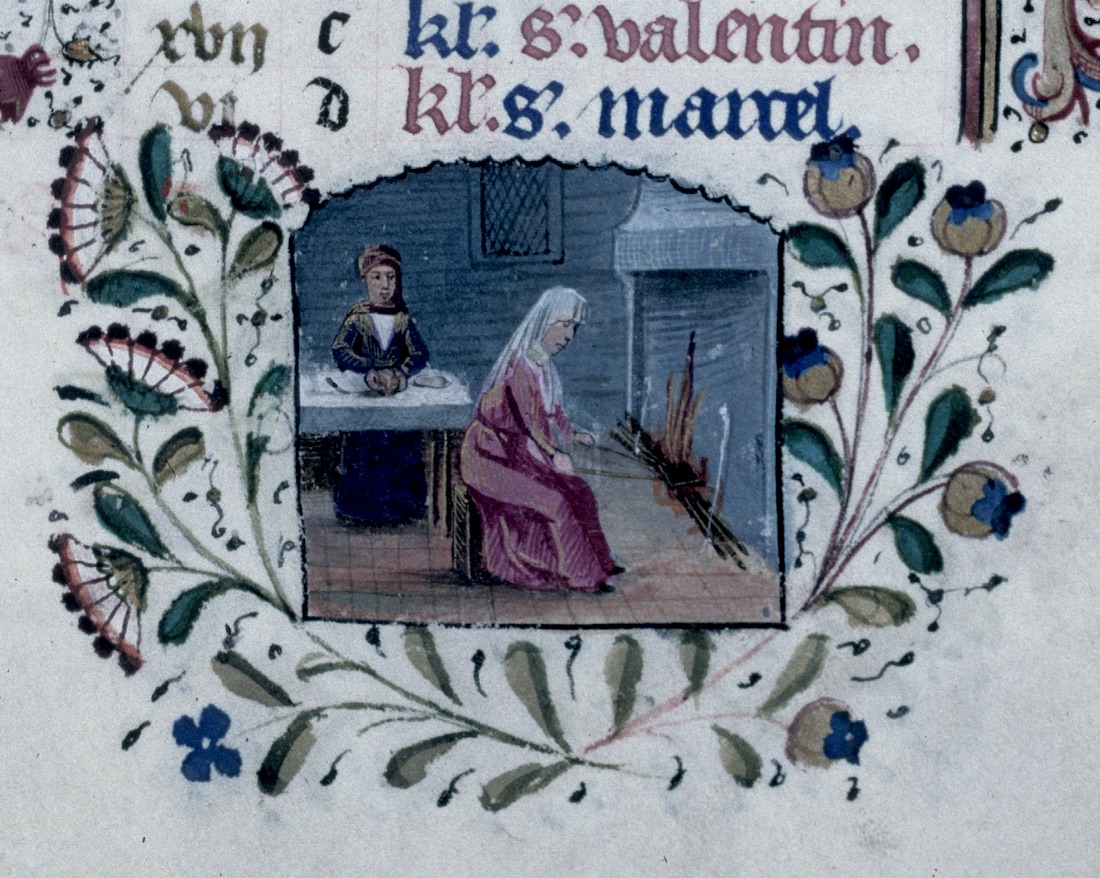 xvii c kl. s. valentin.
vi D kl. s. marcel.